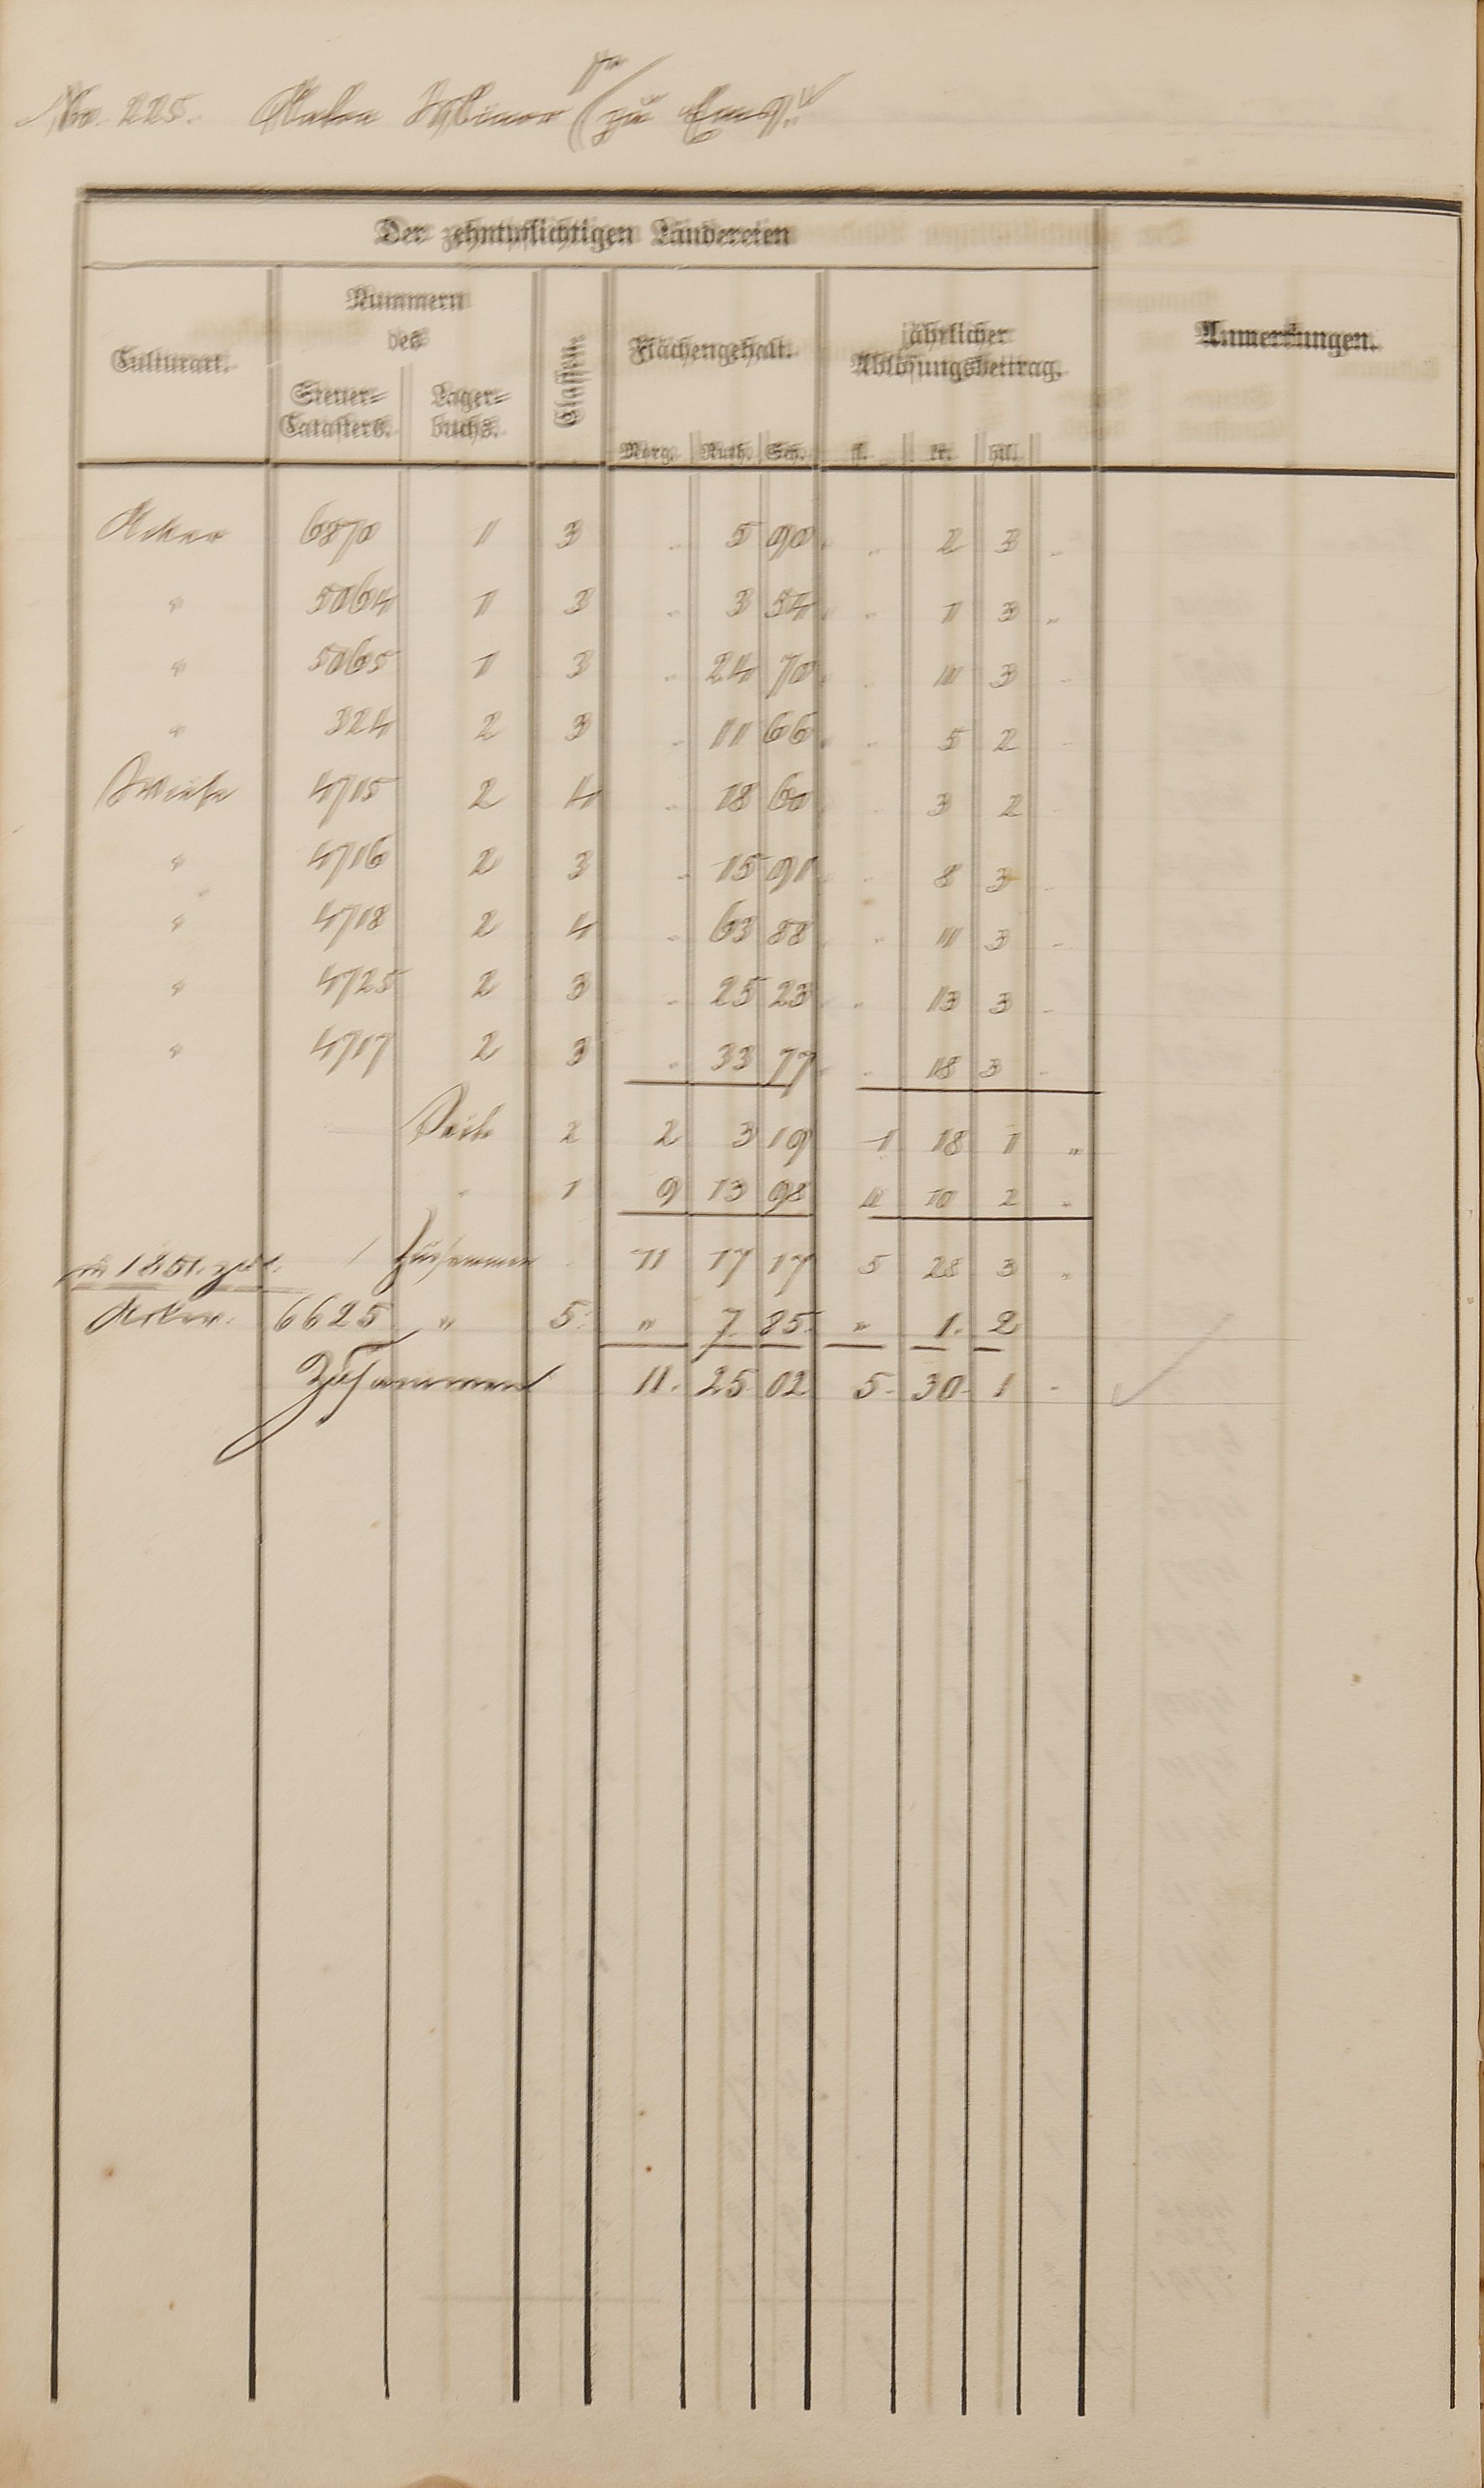 No. 225. zu Ems.
Der zehntpflichtigen Ländereien
Culturart. Nummern des Classen. Flächengehalt. jährlicher Ablösungsbeitrag. Anmerkungen.
Steuer= Catasters. Lager= buchs.
Morg. Ruth. Sch. fl. kr. hll.
Acker 6870 1 3 „ 5 90 „ 2 3
" 5064 1 3 „ 3 54 „ 1 3
" 5065 1 3 „ 24 70 „ 11 3
" 324 2 3 „ 11 66 „ 5 2
Wiese 4715 2 4 „ 18 60 „ 3 2
" 4716 2 3 „ 15 91 „ 8 3
" 4718 2 4 „ 63 88 „ 11 3
" 4725 2 3 „ 25 23 „ 13 3
" 4717 2 3 „ 33 77 „ 18 3
Seite 2 2 3 19 1 18 1 „
" 1 9 13 98 4 10 2 „
Zusammen 11 17 17 5 28 3 „
in 1851. zu
Acker. 6625 " 5. " 7. 85. " 1. 2
Zusammen 11. 25 02 5. 30. 1 -